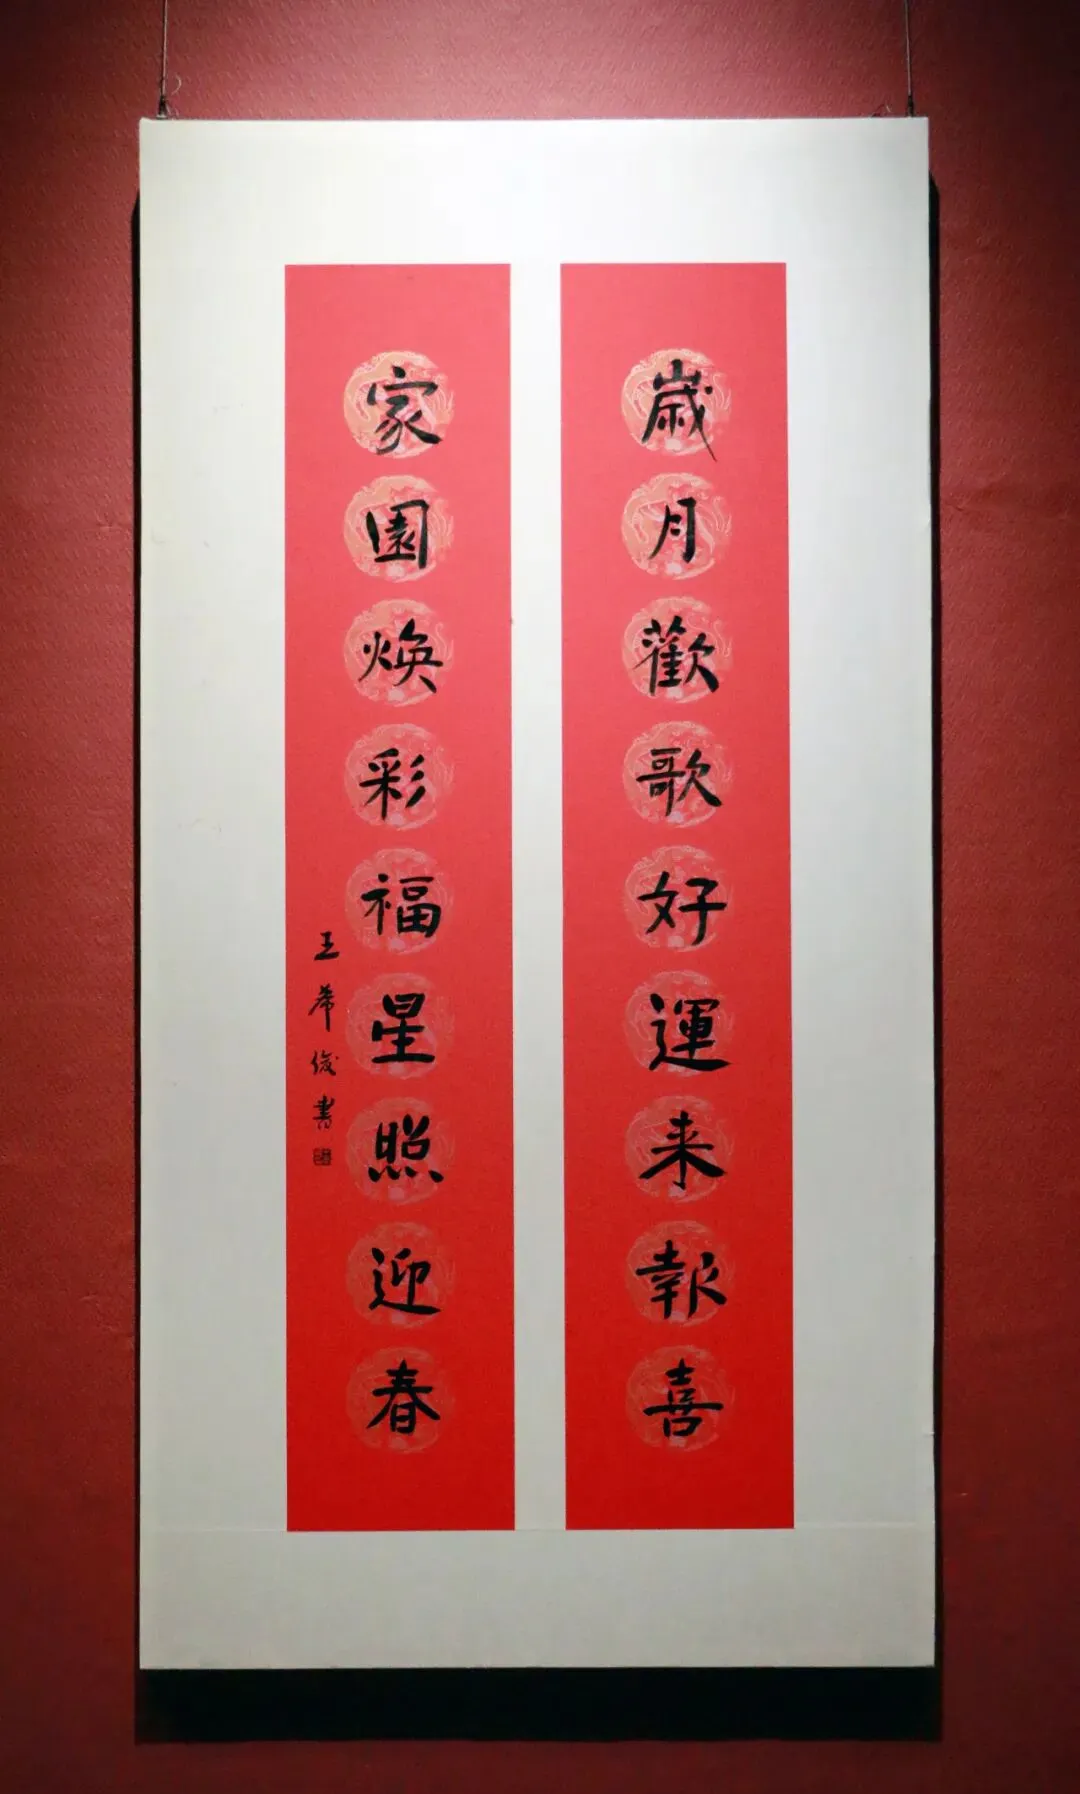 歲月歡歌好運来報喜
家園焕彩福星照迎春
王希俊書